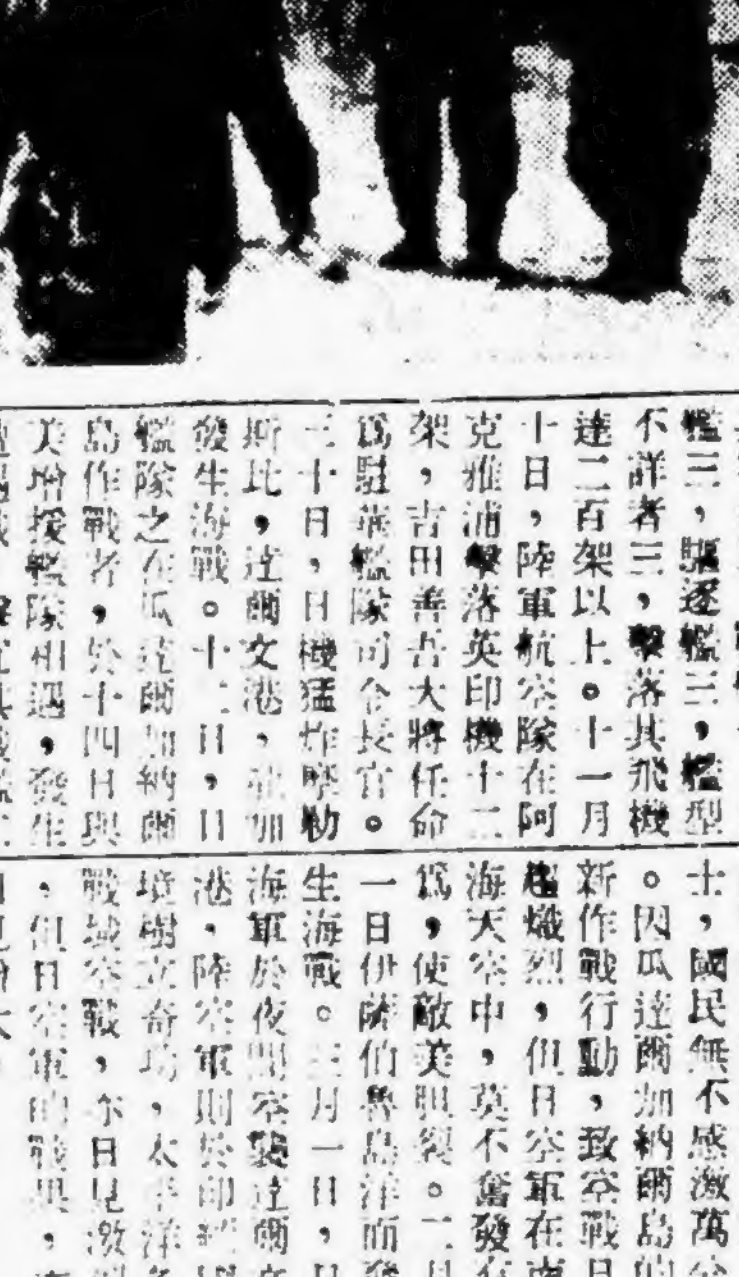 艦三，驅逐艦三，艦型
不詳者三，擊落其飛機
達二百架以上。十一月
十日，陸軍航空隊在阿
克雅浦擊落英印機十二
架，吉田善吾大將任命
爲駐華艦隊司令長官。
三十日，日機猛炸摩勒
斯比，達爾文港，加
發生海戰。十二日，日
艦隊之在瓜達爾加納爾
島作戰者，於十四日與
美增援艦隊相遇，發生
士，國民無不感激萬
。因瓜達爾加納爾島
新作戰行動，致空戰日
趨熾烈，但日空軍在南
海天空中，莫不奮發
爲，使敵美胆裂。二月
一日伊薩伯魯島洋面發
生海戰。三月一日，日
海軍於夜間空襲達爾文
港，陸空軍則於印
境樹立奇功，太平洋
戰域空戰，亦日見激
，但日空軍的戰果，